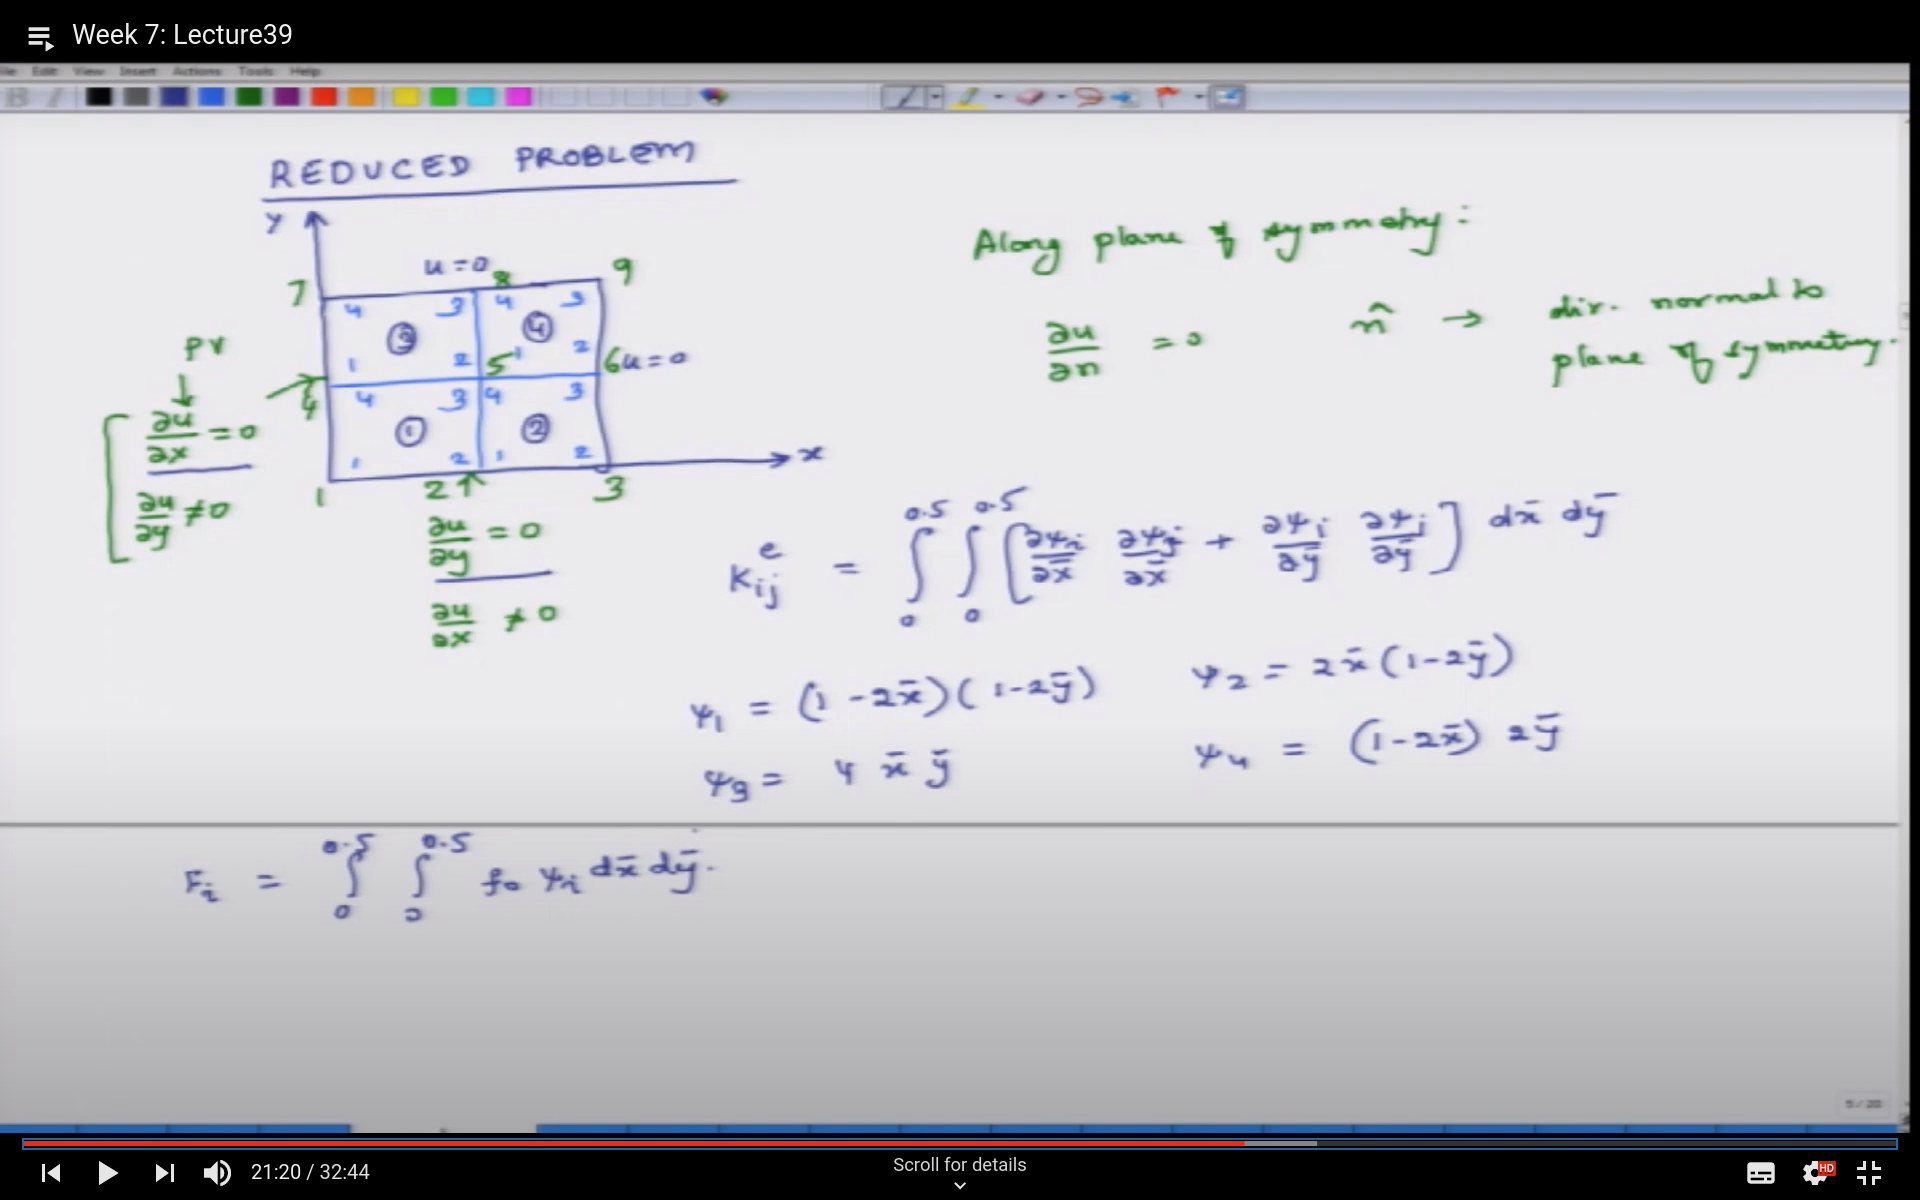 Week 7: Lecture39
File Edit View Insert Actions Tools Help
REDUCED PROBLEM
y
u=0
7 8 9
4 3 4 3
③ ④
1 2 1 2
4 5 6 u=0
4 3 4 3
① ②
1 2 1 2
x
1 2 3
PV
↓
∂u/∂x = 0
∂u/∂y ≠ 0
∂u/∂y = 0
∂u/∂x ≠ 0
Along plane of symmetry:
∂u/∂n = 0
n̂ → dir. normal to
plane of symmetry.
K_ij^e = ∫_0^0.5 ∫_0^0.5 [∂ψ_i/∂x̄ ∂ψ_j/∂x̄ + ∂ψ_i/∂ȳ ∂ψ_j/∂ȳ] dx̄ dȳ
ψ_1 = (1-2x̄)(1-2ȳ) ψ_2 = 2x̄(1-2ȳ)
ψ_3 = 4 x̄ ȳ ψ_4 = (1-2x̄) 2ȳ
F_i = ∫_0^0.5 ∫_0^0.5 f_0 ψ_i dx̄ dȳ.
5/20
21:20 / 32:44
Scroll for details
HD